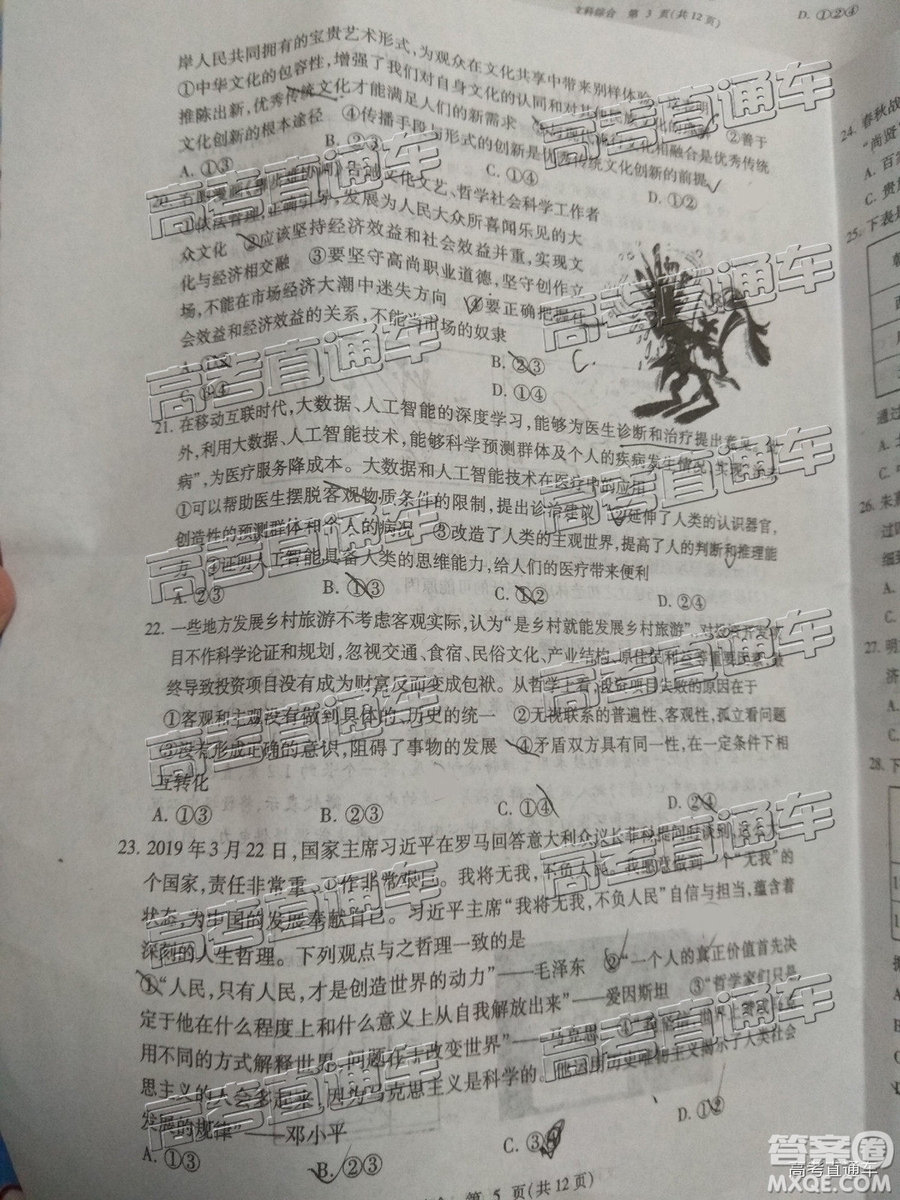 文科综合 第 3 页(共12页)
D. ①②④
岸人民共同拥有的宝贵艺术形式,为观众在文化共享中带来别样体验。这表明
①中华文化的包容性,增强了我们对自身文化的认同和对其他民族文化的 ②善于
推陈出新,优秀传统文化才能满足人们的新需求 相融合是优秀传统
文化创新的根本途径 ④传播手段与形式的创新是优秀传统文化创新的前提
A. ①③
B. ②③
C. ①④
D. ①②
20. 告诫文化文艺、哲学社会科学工作者
①依法管理,正确引导,发展为人民大众所喜闻乐见的大
众文化 ②应该坚持经济效益和社会效益并重,实现文
化与经济相交融 ③要坚守高尚职业道德,坚守创作立
场,不能在市场经济大潮中迷失方向 ④要正确把握社
会效益和经济效益的关系,不能当市场的奴隶
A. ①②
B. ②③
C.
C. ③④
D. ①④
21. 在移动互联时代,大数据、人工智能的深度学习,能够为医生诊断和治疗提出意见。
外,利用大数据、人工智能技术,能够科学预测群体及个人的疾病发生情况,实现
病”,为医疗服务降成本。大数据和人工智能技术在医疗中的应用
①可以帮助医生摆脱客观物质条件的限制,提出诊治建议 ②延伸了人类的认识器官,
创造性的预测群体和个人的病况 ③改造了人类的主观世界,提高了人的判断和推理能
力 ④证明人工智能具备人类的思维能力,给人们的医疗带来便利
A. ②③
B. ①③
C. ①②
D. ②④
22. 一些地方发展乡村旅游不考虑客观实际,认为“是乡村就能发展乡村旅游”,对投资开发项
目不作科学论证和规划,忽视交通、食宿、民俗文化、产业结构、原住民利益等重要因素,最
终导致投资项目没有成为财富反而变成包袱。从哲学上看,投资项目失败的原因在于
①客观和主观没有做到具体的、历史的统一 ②无视联系的普遍性、客观性,孤立看问题
③没有形成正确的意识,阻碍了事物的发展 ④矛盾双方具有同一性,在一定条件下相
互转化
A. ①③
B. ②③
C. ①④
D. ②④
23. 2019 年 3 月 22 日,国家主席习近平在罗马回答意大利众议长菲科提问时谈到,这么大
个国家,责任非常重、工作非常艰巨。我将无我,不负人民。我愿意做到一个“无我”的
状态,为中国的发展奉献自己。习近平主席“我将无我,不负人民”自信与担当,蕴含着
深刻的人生哲理。下列观点与之哲理一致的是
①“人民,只有人民,才是创造世界的动力”——毛泽东 ②“一个人的真正价值首先决
定于他在什么程度上和什么意义上从自我解放出来”——爱因斯坦 ③“哲学家们只是
用不同的方式解释世界,问题在于改变世界”——马克思 ④“我坚信,世界上赞成马克
思主义的人会多起来,因为马克思主义是科学的。他运用历史唯物主义揭示了人类社会
发展的规律”——邓小平
A. ①③
B. ②③
C. ③④
D. ①②
第 5 页(共12页)
24. 春秋战
“尚贤”
A. 百家
C. 贵
25. 下表是
通过
A.
C.
26. 朱熹
过
细
A.
C.
27. 明
济
A.
C.
28. 下
高考直通车
答案圈
MXQE.COM